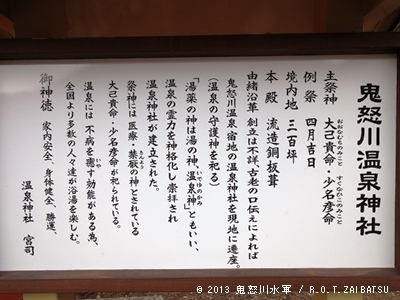 鬼怒川温泉神社
主祭神 大己貴命・少名彦命
おおなむちのみこと すくなひこのみこと
例祭 四月吉日
境内地 三百坪
本殿 流造銅板葺
由緒沿革 創立は不詳、古老の口伝えによれば
鬼怒川温泉 宿地の温泉神社を現地に遷座。
(温泉の守護神を祀る)
「湯薬の神は湯の神、温泉神」ともいい、
いでゆのかみ
温泉の霊力を神格化し崇拝され
温泉神社が建立された。
祭神は医療・禁厭の神とされている
きんよう
大己貴命・少名彦命が祀られている。
温泉には 不病を癒す効能がある為、
いや
全国より多数の人々達が浴湯を楽しむ。
御神徳 家内安全、身体健全、勝運、
温泉神社 宮司
© 2013 鬼怒川水軍 / R.O.T.ZAIBATSU